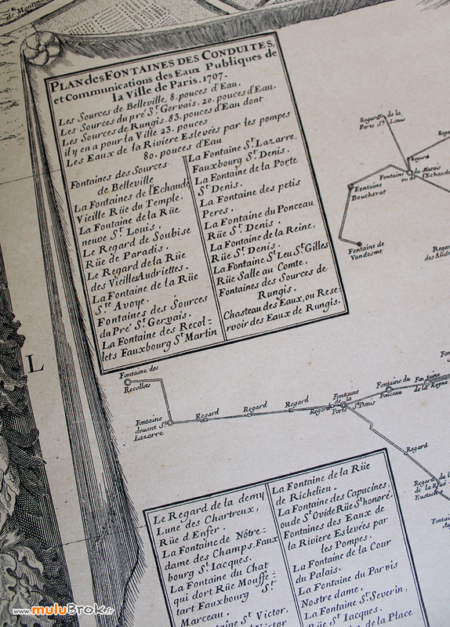 PLAN des FONTAINES DES CONDUITES,
et Communications des Eaux Publiques de
la Ville de Paris. 1707.
Les Sources de Belleville, 8. pouces d'Eau.
Les Sources du pré St. Gervais. 20. pouces d'Eau.
Les Sources de Rungis. 83. pouces d'Eau dont
il y en a pour la Ville 23. pouces
Les Eaux de la Riviere Eslevées par les pompes
80. pouces d'Eau
Fontaines des Sources
de Belleville
La Fontaine de l'Echaudé
Vieille Rüe du Temple.
La Fontaine de la Rüe
neuve St. Louis.
Le Regard de Soubise
Rüe de Paradis.
Le Regard de la Rüe
des Vieilles Audriettes.
La Fontaine de la Rüe
Ste. Avoye.
Fontaines des Sources
du Pré St. Gervais.
La Fontaine des Recol-
lets Fauxbourg St. Martin
La Fontaine St. Lazarre
Fauxbourg St. Denis.
La Fontaine de la Porte
St. Denis.
La Fontaine des petis
Peres.
La Fontaine du Ponceau
Rüe St. Denis.
La Fontaine de la Reine,
Rüe St. Denis.
La Fontaine St. Leu St. Gilles
Rüe Salle au Comte.
Fontaines des Sources de
Rungis.
Chasteau des Eaux, ou Rese-
rvoir des Eaux de Rungis.
Regard de la
Porte St. Louis
Regard
Fontaine
du Marais
ou de l'Echaudé
Fontaine
Boucherat
Fontaine de
Vendosme
Regard
L
Fontaine des
Recollets
Fontaine
devant St.
Lazarre
Regard
Regard
Regard
Regard
Fontaine
de la
Porte St. Denis
Fontaine du
Ponceau
Fontaine
de la Reyne
Regard
Le Regard de la demy
Lune des Chartreux,
Rüe d'Enfer.
La Fontaine de Nôtre-
dame des Champs, Faux
bourg St. Jacques.
La Fontaine du Chat
qui dort Rüe Mouffe-
tart Fauxbourg St.
Marceau.
St. Victor,
La Fontaine de la Rüe
de Richelieu.
La Fontaine des Capucines,
ou de St. Ovide Rüe St. honoré.
Fontaines des Eaux de
la Riviere Eslevées par
les Pompes.
La Fontaine de la Cour
du Palais.
La Fontaine du Parvis
Nostre dame.
La Fontaine St. Severin,
Rüe St. Jacques.
de la Place
www.muluBrok.fr